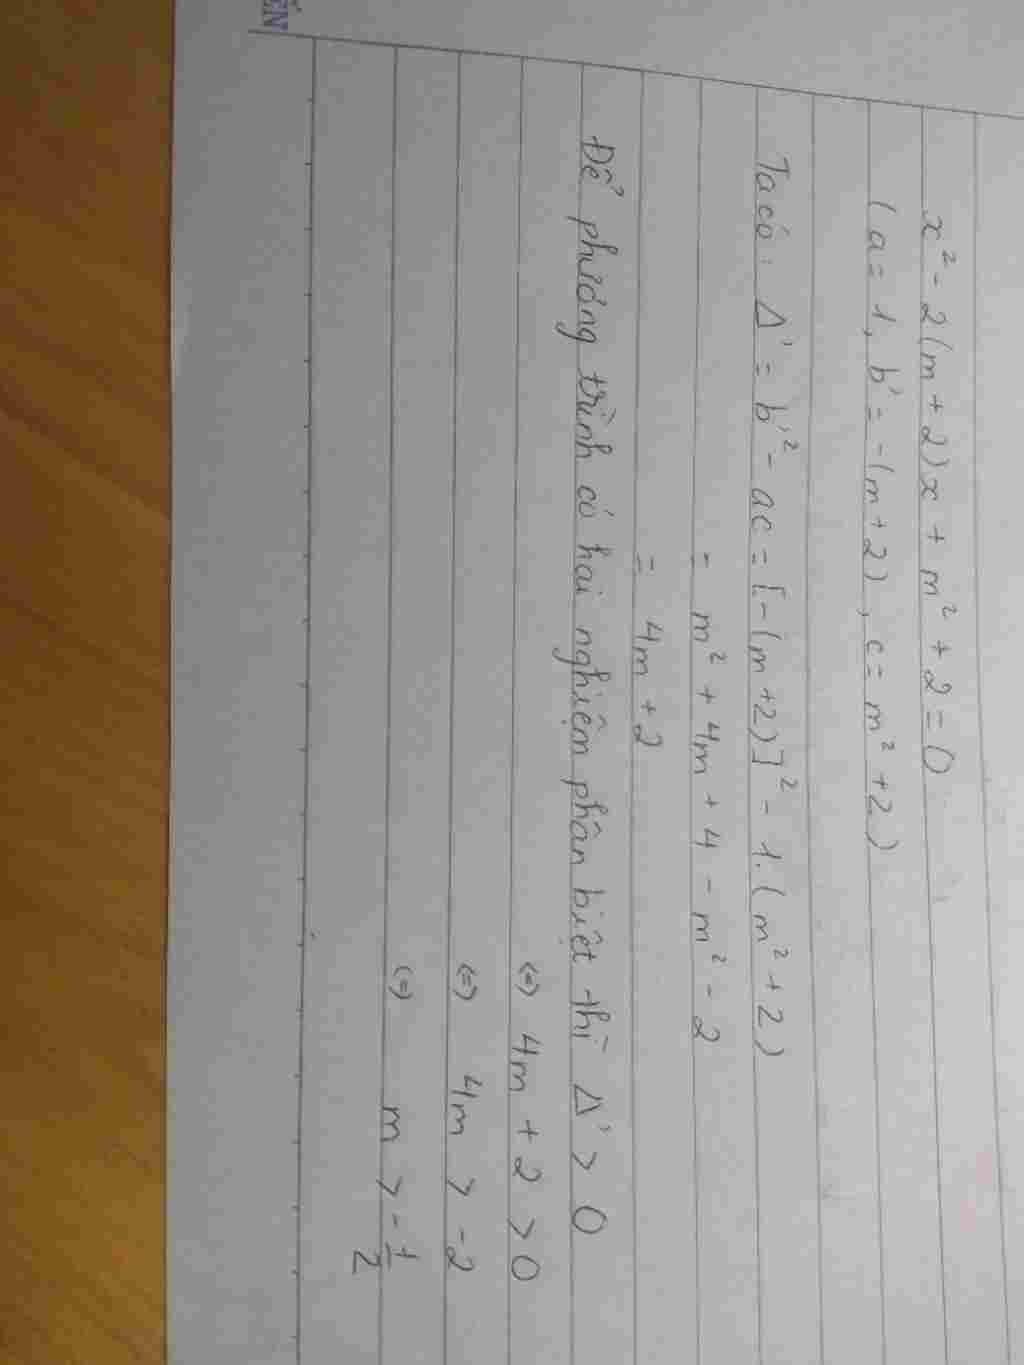 x² - 2(m + 2)x + m² + 2 = 0
(a = 1, b' = -(m+2), c = m² + 2)
Ta có: Δ' = b'² - ac = [-(m+2)]² - 1.(m² + 2)
= m² + 4m + 4 - m² - 2
= 4m + 2
Để phương trình có hai nghiệm phân biệt thì Δ' > 0
(=) 4m + 2 > 0
(=) 4m > -2
(=) m > -1/2